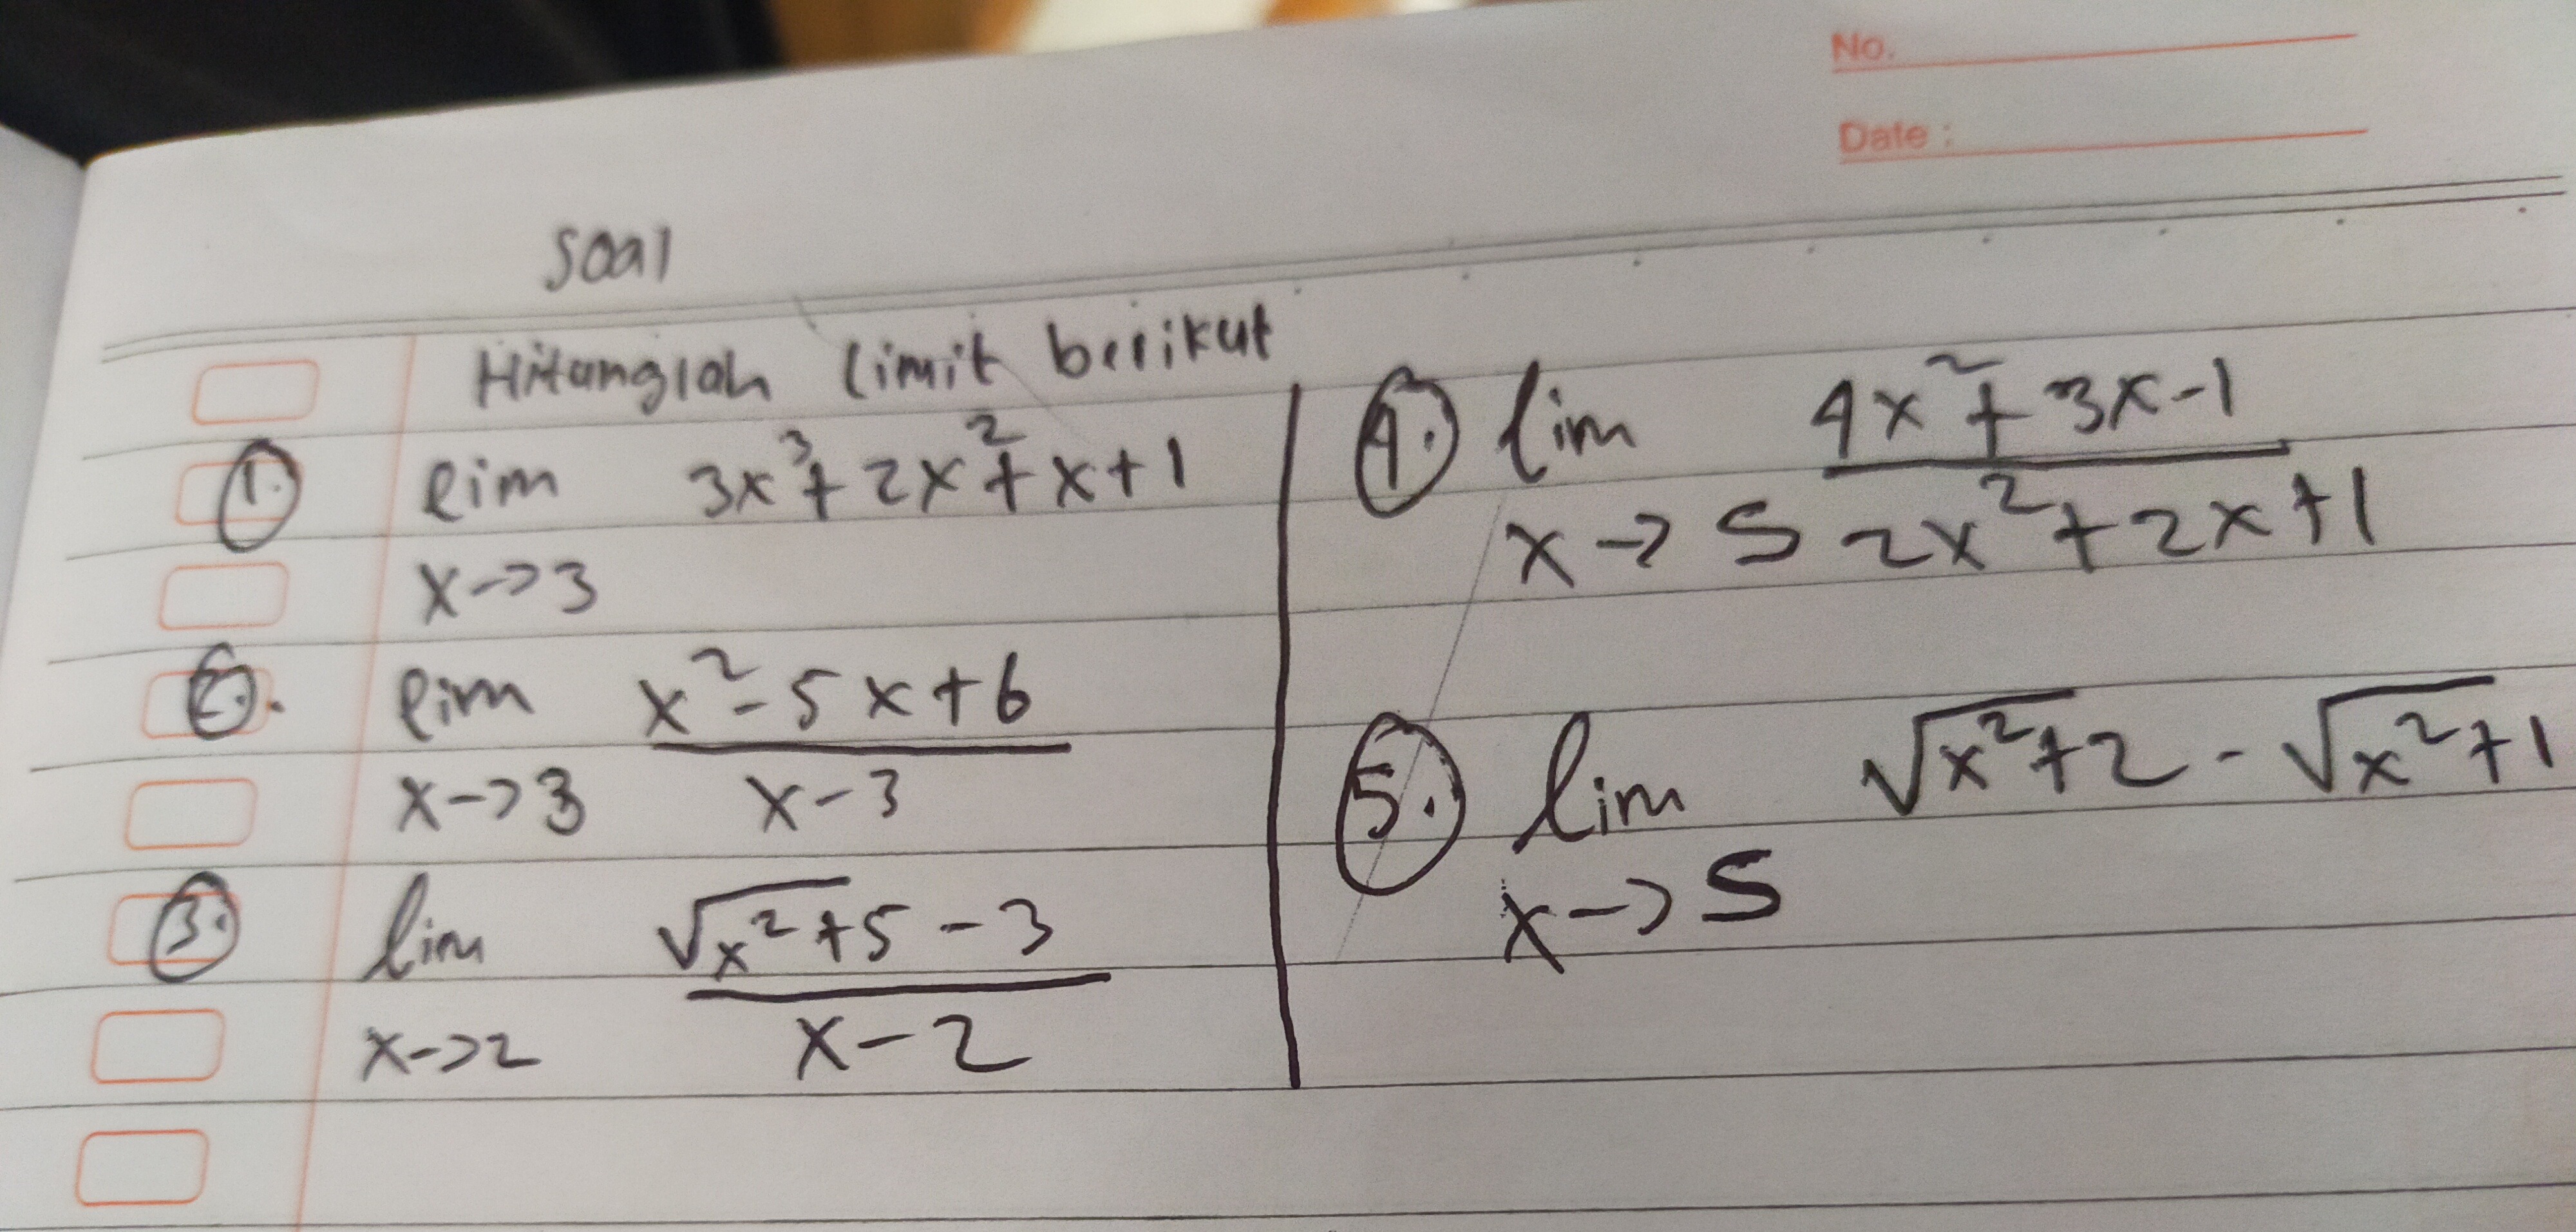 No.
Date :
Soal
Hitunglah limit berikut
1. lim 3x³+2x²+x+1
x->3
2. lim x²-5x+6
x->3 x-3
3. lim √x²+5-3
x->2 x-2
4. lim 4x²+3x-1
x->5 2x²+2x+1
5. lim √x²+2-√x²+1
x->5